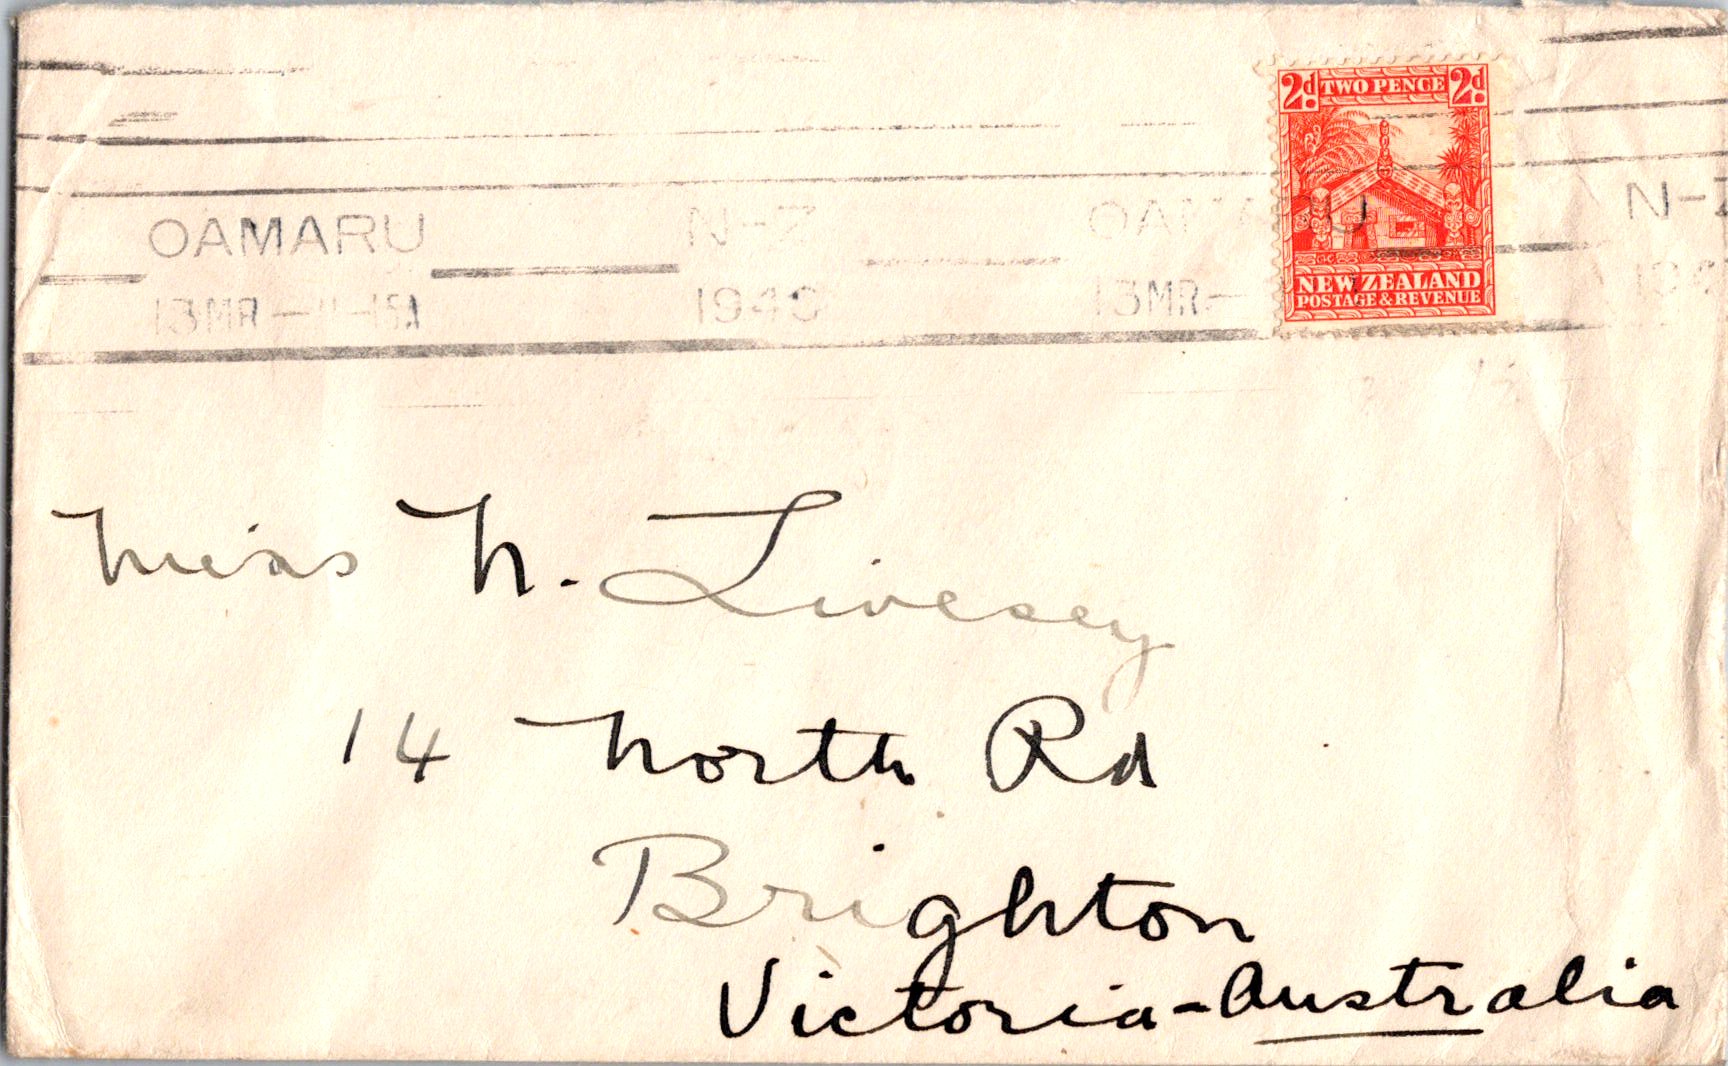 2d TWO PENCE 2d
OAMARU N-Z OAMARU N-Z
13MR 1940 13MR-
NEW ZEALAND
POSTAGE & REVENUE
Miss N. Livesey
14 North Rd
Brighton
Victoria-Australia